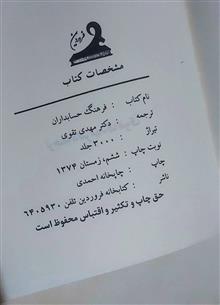 فروردین
مشخصات کتاب
نام کتاب : فرهنگ حسابداران
ترجمه : دکتر مهدی تقوی
تیراژ : ۳۰۰۰ جلد
نوبت چاپ : ششم، زمستان ۱۳۷۴
چاپ : چاپخانه احمدی
ناشر : کتابخانه فروردین تلفن ۶۴۰۵۹۳۰
حق چاپ و تکثیر و اقتباس محفوظ است